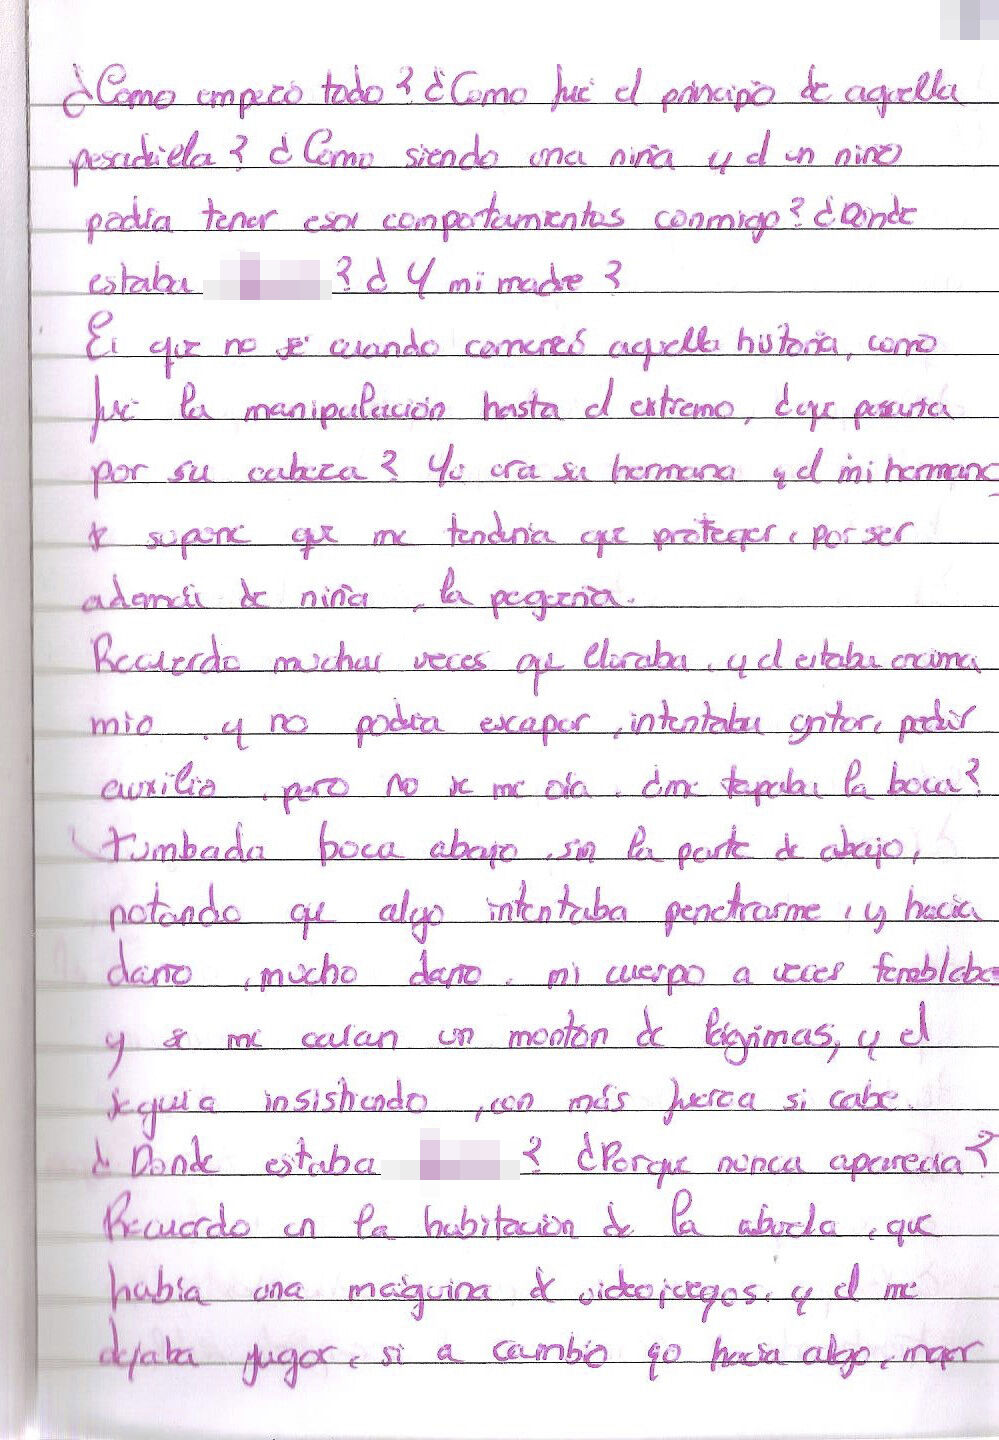 ¿Como empezo todo? ¿Como fue el principio de aquella
pesadiela? ¿Como siendo una niña y el un niño
podia tener esos comportamientos conmigo? ¿Donde
estaba ? ¿Y mi madre?
Es que no se cuando comenzó aquella historia, como
fue la manipulación hasta el extremo, ¿que pasaria
por su cabeza? Yo era su hermana y el mi hermano
se supone que me tendria que proteger, por ser
además de niña, la pequeña.
Recuerdo muchas veces que lloraba, y el estaba encima
mio, y no podia escapar, intentaba gritar, pedir
auxilio, pero no se me oia. ¿me tapaba la boca?
tumbada boca abajo, sin la parte de abajo,
notando que algo intentaba penetrarme, y hacia
daño, mucho daño, mi cuerpo a veces temblaba
y se me caian un montón de lágrimas, y el
seguia insistiendo, con más fuerza si cabe.
¿Donde estaba ? ¿Porque nunca aparecia?
Recuerdo en la habitacion de la abuela, que
había una máquina de videojuegos, y el me
dejaba jugar, si a cambio yo hacia algo, mejor